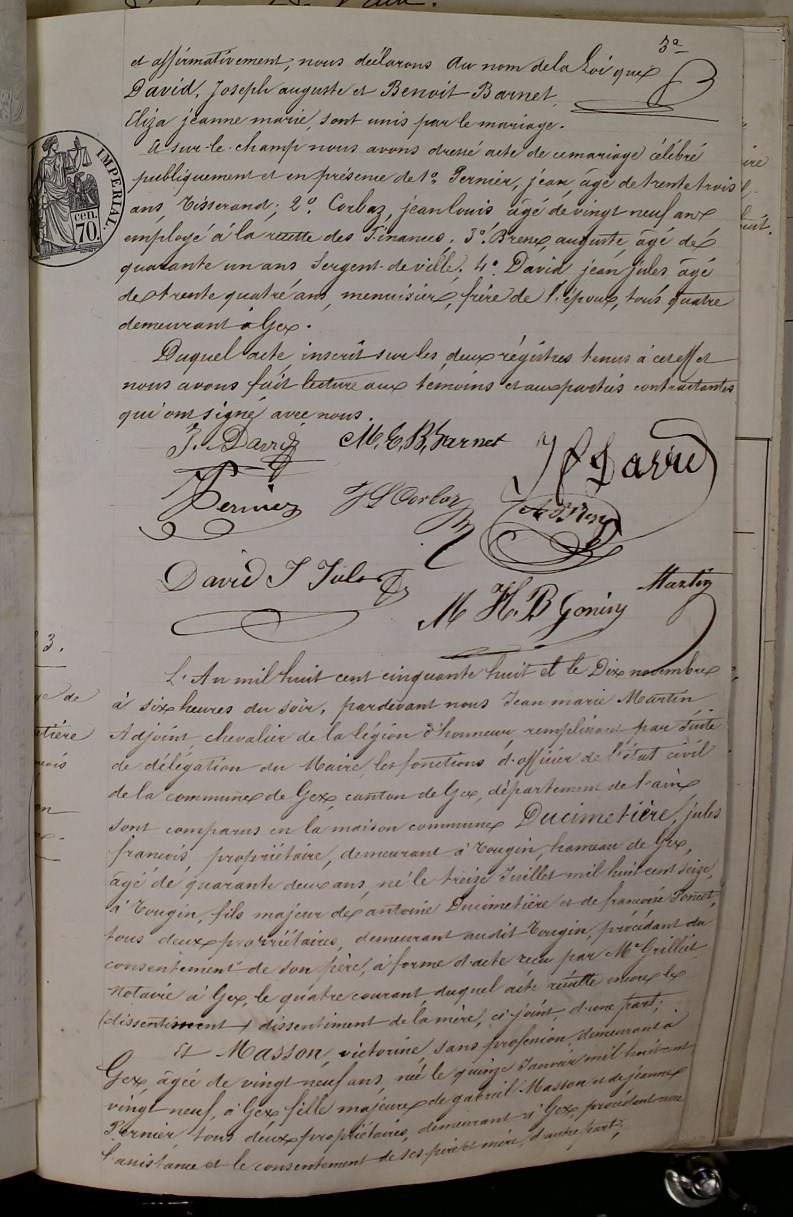 3e
et affirmativement, nous déclarons au nom de la Loi que
David, Joseph auguste et Benoit Barnet,
Eliza jeanne marie, sont unis par le mariage.
Et sur-le-champ nous avons dressé acte de ce mariage célébré
publiquement et en présence de 1o. Pernier, jean âgé de trente trois
ans Tisserand; 2o. Corbaz, jean louis âgé de vingt neuf ans
employé à la recette des Finances. 3o. auguste, âgé de
quarante un ans Sergent-de-ville. 4o. David jean jules âgé
de trente quatre ans, menuisier, frère de l'époux, tous quatre
demeurant à Gex.
Duquel acte inscrit sur les deux régistres tenus à cet effet
nous avons fait lecture aux témoins et aux parties contractantes
qui ont signé avec nous.
J. David M. E. B. Barnet J A David
Pernier J L Corbaz
David J Jules
M H. B Gonin Martin
IMPERIAL.
70. cen.
3.
L'An mil huit cent cinquante huit et le Dix novembre
à six heures du soir, pardevant nous Jean marie Martin
Adjoint chevalier de la légion d'honneur remplissant par suite
de délégation du Maire, les fonctions d'officier de l'état civil
de la commune de Gex, canton de Gex, département de l'ain,
sont comparus en la maison commune Ducimetière, jules
françois, propriétaire, demeurant à Tougin, hameau de Gex,
âgé de quarante deux ans, né le treize Juillet mil huit cent seize,
à Tougin, fils majeur de antoine Ducimetière et de françoise Poncet,
tous deux propriétaires, demeurant audit Tougin, procédant du
consentement de son père, à forme d'acte reçu par Me Grillet
Notaire à Gex, le quatre courant duquel acte résulte encore le
(dissentiment) dissentiment de la mère, ci-joint, d'une part;
Et Masson, victorine, sans profession, demeurant à
Gex, âgée de vingt neuf ans, née le quinze Janvier mil huit cent
vingt neuf, à Gex fille majeure de gabriel Masson et de jeanne
Pernier, tous deux propriétaires, demeurant à Gex procédant avec
l'assistance et le consentement de ses père et mère, d'autre part;